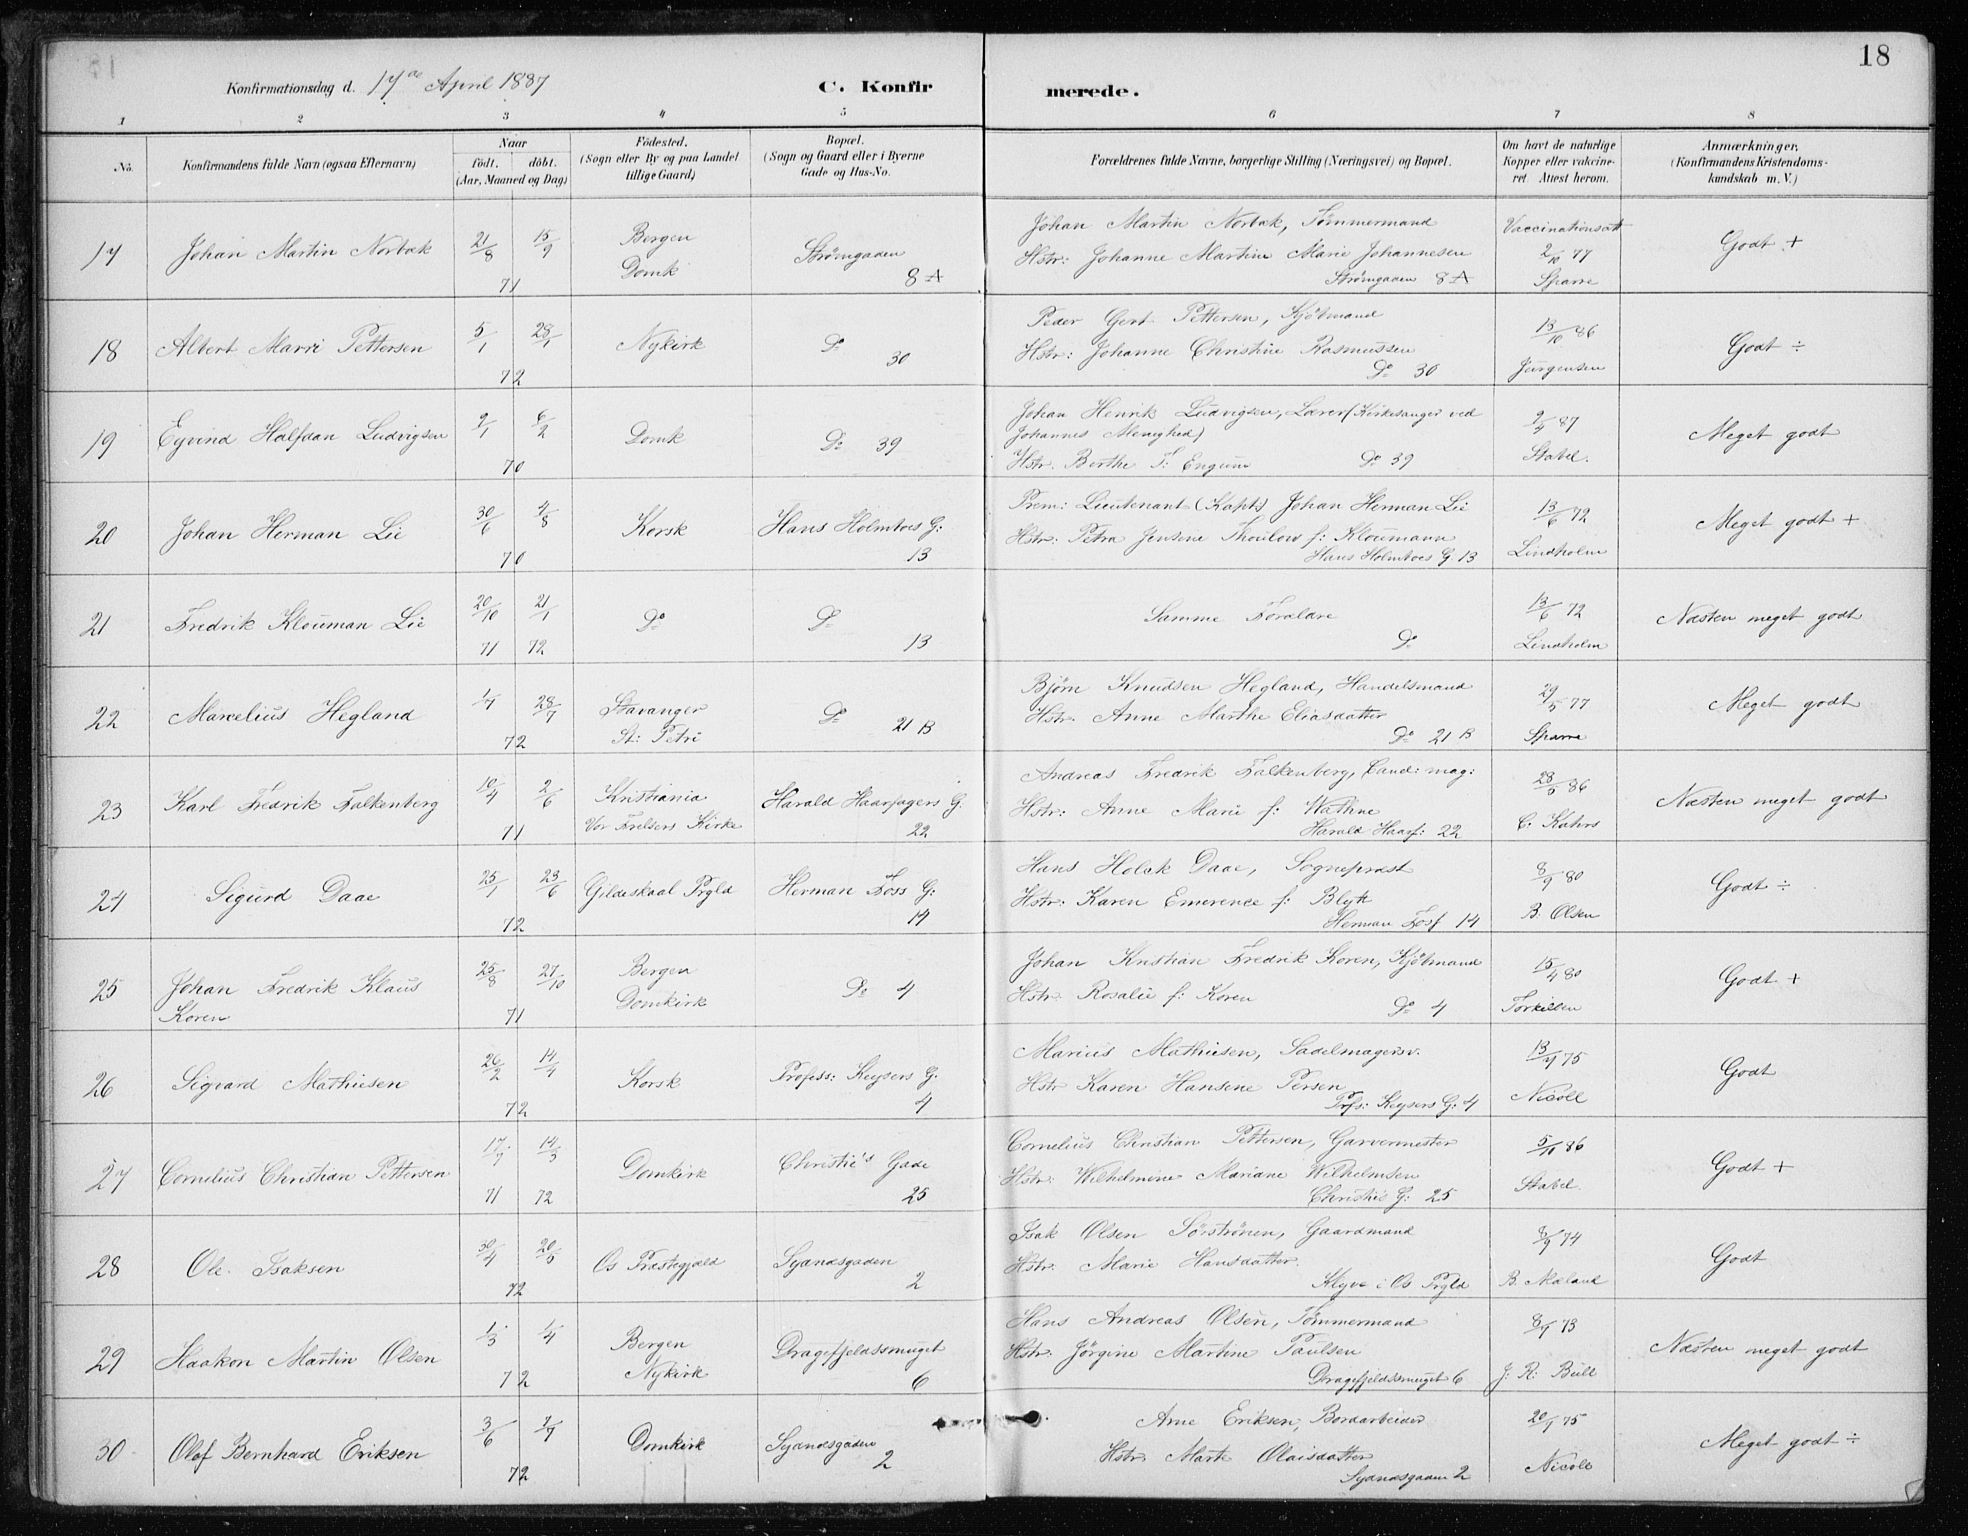 18
Konfirmationsdag d. 17de April 1887
C. Konfirmerede.
1 2 3 4 5 6 7 8
No. Konfirmandens fulde Navn (ogsaa Efternavn) Naar født. døbt. (Aar, Maaned og Dag) Födested. (Sogn eller By og paa Landet tillige Gaard) Bopæl. (Sogn og Gaard eller i Byerne Gade og Hus-No. Forældrenes fulde Navne, borgerlige Stilling (Næringsvei) og Bopæl. Om havt de naturlige Kopper eller vaccineret. Attest herom. Anmærkninger, (Konfirmandens Kristendomskundskab m. V.)
17 Johan Martin Norbæk 21/8 15/9 71 Bergen Domk Strømgaden 8 A
Johan Martin Norbæk, Tømmermand
Hstr: Johanne Martine Marie Johannesen
Strømgaden 8 A
Vaccinationsatt 2/10 77 Sparre Godt +
18 Albert Marri Pettersen 5/1 28/1 72 Nykirk Do 30
Peder Gert Pettersen, Kjøbmand
Hstr: Johanne Christine Rasmussen
Do 30
13/10 86 Jurgensen Godt ÷
19 Eyvind Halfdan Ludvigsen 9/1 6/2 70 Domk Do 39
Johan Henrik Ludvigsen, Lærer (Kirkesanger ved
Johannes Menighed)
Hstr. Berthe T: Do 39
87 Stabel. Meget godt
20 Johan Herman Lie 30/6 4/8 70 Korsk Hans Holmboes G: 13
Prem: Lieutenant (Kapt:) Johan Herman Lie
Hstr: Petra Jensine Thoulow f: Kloumann
Hans Holmboes G. 13
13/6 72 Lindholm Meget godt +
21 Fredrik Klouman Lie 20/10 21/1 71 72 Do Do 13
Samme Forældre
Do
13/6 72 Lindholm Næsten meget godt
22 Marcelius Hegland 1/7 28/7 72 Stavanger St: Petri Do 21 B
Bjørn Knudsen Hegland, Handelsmand
Hstr. Anne Marthe Eliasdatter
Do 21 B
29/5 77 Sparre Meget godt
23 Karl Fredrik Falkenberg 10/4 2/6 71 Kristiania Vor Frelsers Kirke Harald Haarfagers G. 22
Andreas Fredrik Falkenberg, Cand: mag:
Hstr: Anne Marie f: Wathne
Harald Haarf: 22
28/5 86 C. Kahrs Næsten meget godt
24 Sigurd Daae 25/1 23/6 72 Gildeskaal Prgld Herman Foss G: 14
Hans Holck Daae, Sogneprest
Hstr: Karen Emerence f: Blytt
Herman Fosf 14
8/9 80 B. Olsen Godt ÷
25 Johan Fredrik Klaus Koren 25/8 27/10 71 Bergen Domkirk Do 4
Johan Kristian Fredrik Koren, Kjøbmand
Hstr. Rosalie f: Koren
Do 4
15/4 80 Torkilsen Godt +
26 Sigvard Mathiesen 26/2 14/4 72 Korsk Profess: Keysers G. 4
Marius Mathiesen, Sadelmagersv.
Hstr Karen Hansene Persen
Prfs: Keysers G: 4
75 Nicoll Godt
27 Cornelius Christian Pettersen 17/7 14/3 71 72 Domkirk Christie's Gade 25
Cornelius Christian Pettersen, Garvermester
Hstr: Wilhelmine Mariane Wilhelmsen
Christies G: 25
5/11 86 Stabel. Godt +
28 Ole Isaksen 30/4 20/5 72 Os Præstegjæld Sydnæsgaden 2
Isak Olsen Sörströnen, Gaardmand
Hstr. Marie Hansdatter
Klyve i Os Prgld
8/9 74 B. Mæland Godt
29 Haakon Martin Olsen 1/3 1/4 72 Bergen Nykirk Dragefjeldssmuget 6
Hans Andreas Olsen, Tømmermand
Hstr. Jörgine Martine Paulsen
Dragefjeldssmuget 6
8/9 73 J. R. Bull Næsten meget godt
30 Olaf Bernhard Eriksen 3/6 7/7 72 Domkirk Sydnæsgaden 2
Arne Eriksen, Bordarbeider
Hstr. Marte Olaisdatter
Sydnæsgaden 2
20/1 75 Nicoll Meget godt ÷